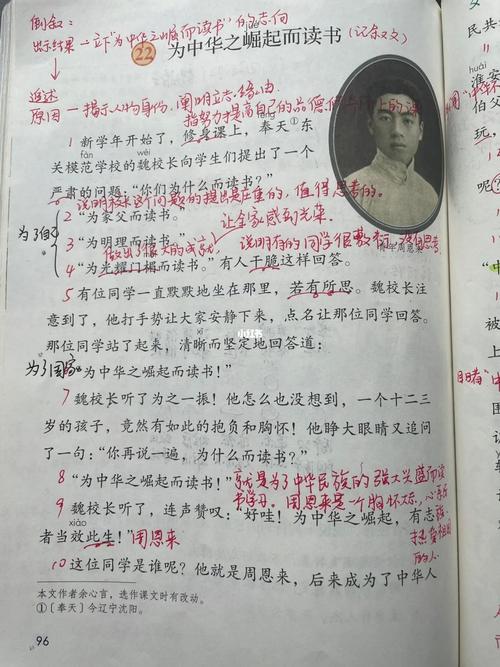 倒叙：
出示结果—立下"为中华之崛起而读书"的志向
22 为中华之崛起而读书（记叙文）
追述
原因—揭示人物身份，阐明立志缘由
指努力提高自己的品德
1 新学年开始了，修身课上，奉天①东
fàn wèi
关模范学校的魏校长向学生们提出了一个
严肃的问题："你们为什么而读书？"
说明校长这个问题的提出是庄重的，值得思考的。
2 "为家父而读书。"
让全家感到光荣
为了自己
3 "为明理而读书。"
做出了很大的成就
说明有的同学很敷衍，没有思考
4 "为光耀门楣而读书。"有人干脆这样回答。
青年周恩来
5 有位同学一直默默地坐在那里，若有所思。魏校长注
意到了，他打手势让大家安静下来，点名让那位同学回答。
那位同学站了起来，清晰而坚定地回答道：
为了国家
"为中华之崛起而读书！"
7 魏校长听了为之一振！他怎么也没想到，一个十二三
岁的孩子，竟然有如此的抱负和胸怀！他睁大眼睛又追问
了一句："你再说一遍，为什么而读书？"
8 "为中华之崛起而读书！"就是为了中华民族的强大兴盛而
读书学习。周恩来是一个胸怀大志，心系
9 魏校长听了，连声赞叹："好哇！为中华之崛起，有志
热爱祖国
的人
xiào
者当效此生！"周恩来
10 这位同学是谁呢？他就是周恩来，后来成为了中华人
本文作者余心言，选作课文时有改动。
①〔奉天〕今辽宁沈阳。
96
小红书
民共
huái
淮安
伯父
玩，
呢？